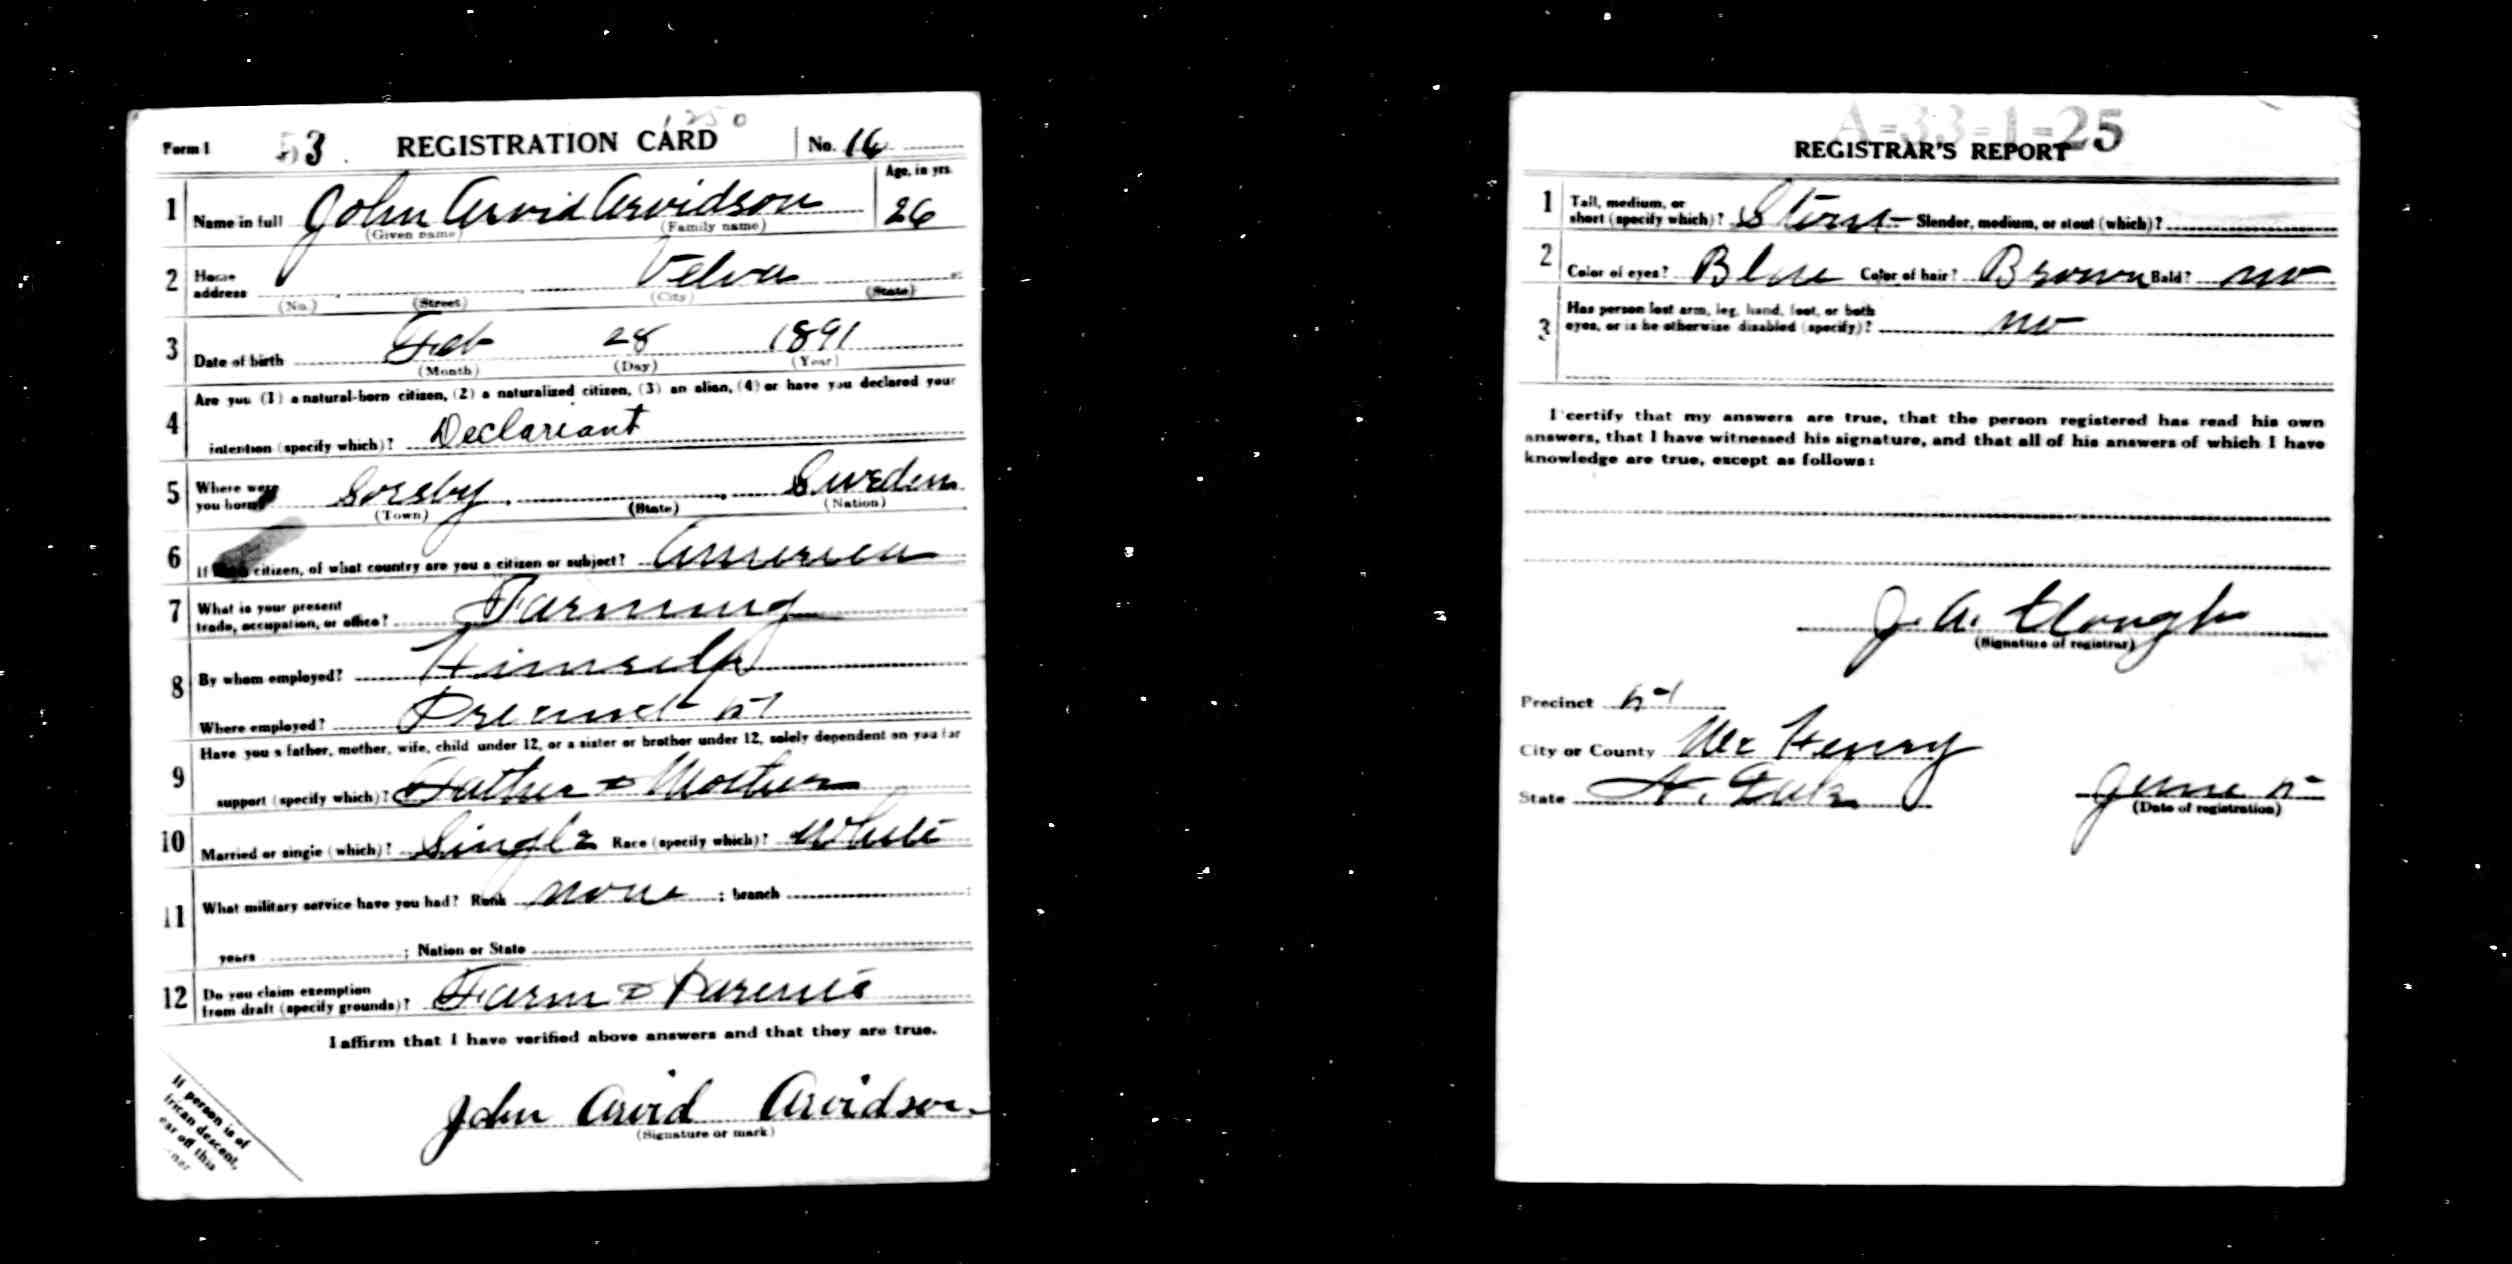 Form 1 53 REGISTRATION CARD No. 16
1 Name in full John Arvid Arvidson Age, in yrs. 26
(Given name) (Family name)
2 Home address Velva
(No.) (Street) (City) (State)
3 Date of birth Feb 28 1891
(Month) (Day) (Year)
4 Are you (1) a natural-born citizen, (2) a naturalized citizen, (3) an alien, (4) or have you declared your
intention (specify which)? Declariant
5 Where were you born? Sorsby Sweden
(Town) (State) (Nation)
6 If citizen, of what country are you a citizen or subject? America
7 What is your present
trade, occupation, or office? Farming
8 By whom employed? Himself
Where employed? Precinct
9 Have you a father, mother, wife, child under 12, or a sister or brother under 12, solely dependent on you for
support (specify which)? Father & Mother
10 Married or single (which)? Single Race (specify which)? White
11 What military service have you had? Rank none ; branch
years ; Nation or State
12 Do you claim exemption
from draft (specify grounds)? Farm & Parents
I affirm that I have verified above answers and that they are true.
John Arvid Arvidson
(Signature or mark)
If person is of
rican descent,
ear off this
ner
A-33-1-25
REGISTRAR'S REPORT
1 Tall, medium, or
short (specify which)? Stout Slender, medium, or stout (which)?
2 Color of eyes? Blue Color of hair? Brown Bald? no
3 Has person lost arm, leg, hand, foot, or both
eyes, or is he otherwise disabled (specify)? no
I certify that my answers are true, that the person registered has read his own
answers, that I have witnessed his signature, and that all of his answers of which I have
knowledge are true, except as follows:
J. A. Clough
(Signature of registrar)
Precinct
City or County Mc Henry
State N. Dak June 5
(Date of registration)